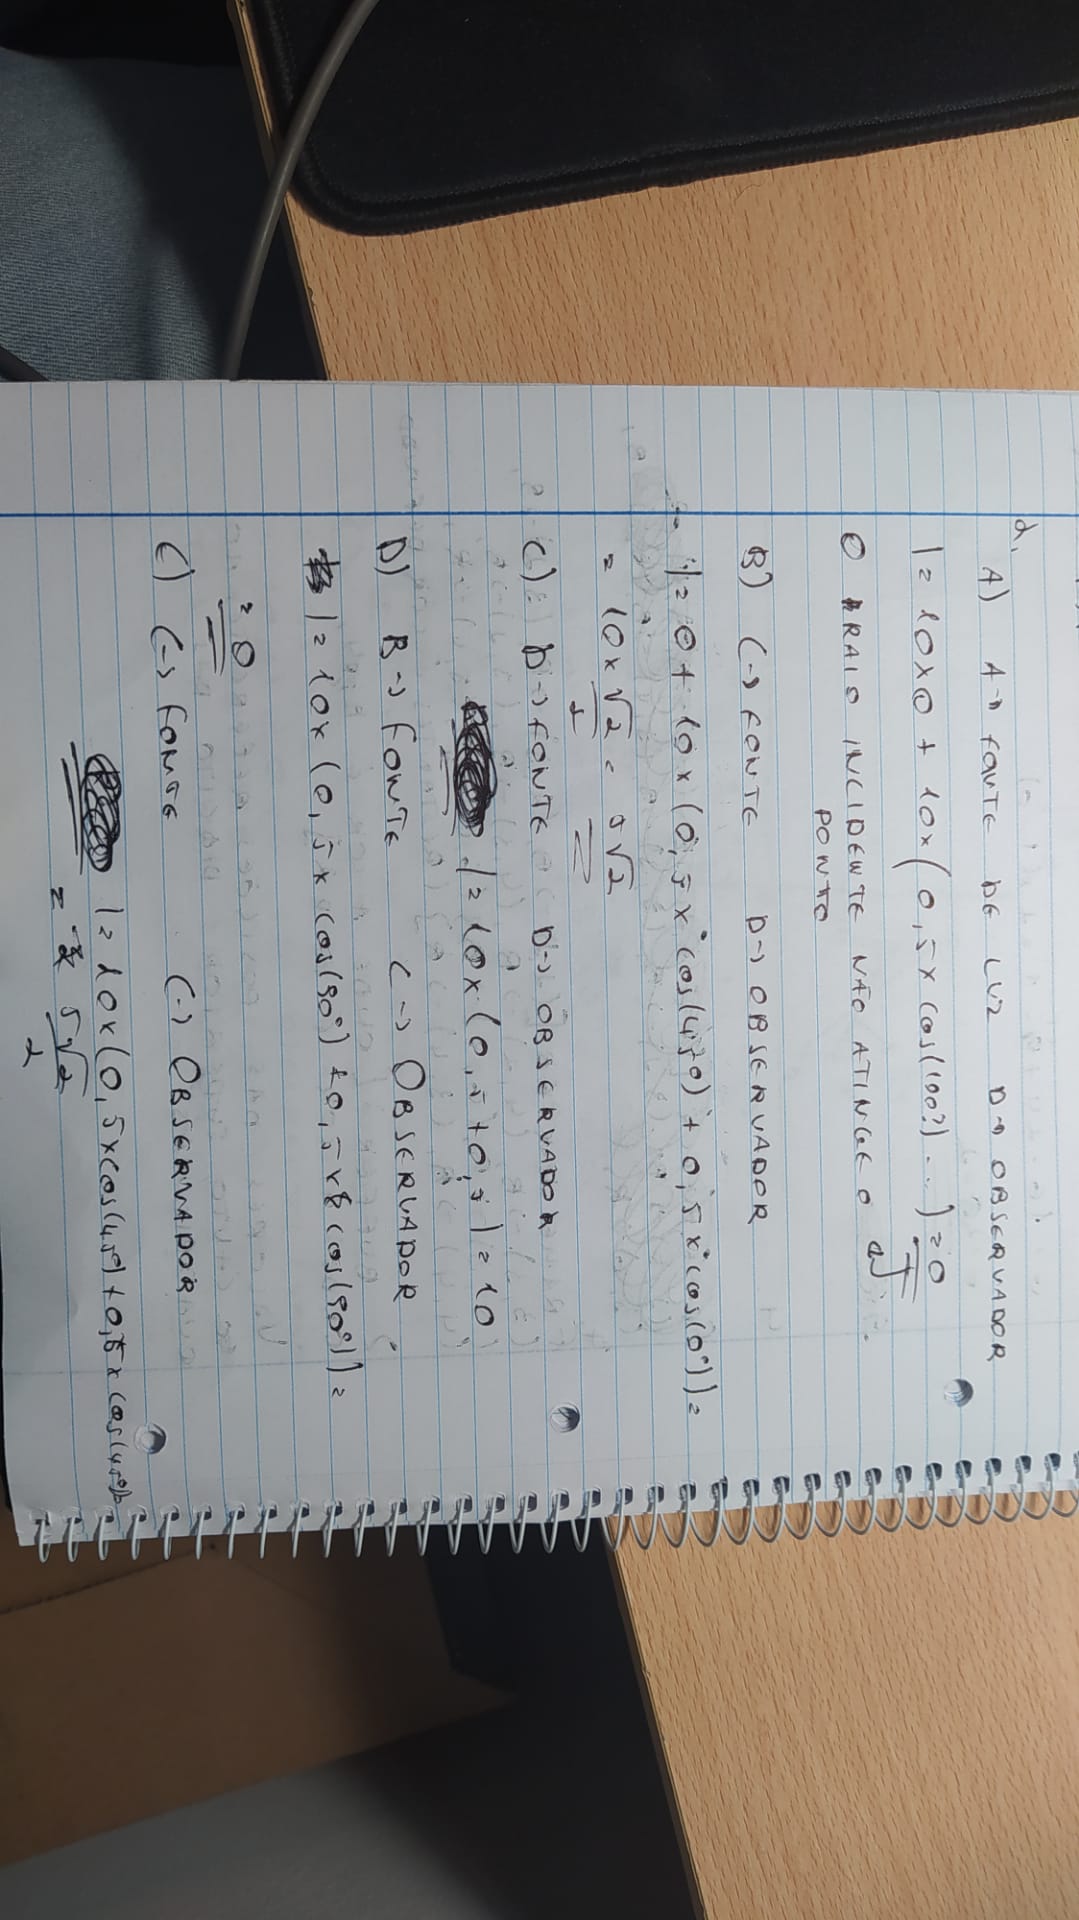 2.
A) A→ FONTE DE LUZ D→ OBSERVADOR
I = 10x0 + 10x(0,5x cos(100?) ...) = 0
O RAIO INCIDENTE NÃO ATINGE O
PONTO
B) C→ FONTE D→ OBSERVADOR
I = 0 + 10 x (0,5 x cos(45º) + 0,5 x cos(0°)) =
= 10 x √2/2 = 5√2
C) D→ FONTE D→ OBSERVADOR
I = 10x (0,5 + 0,5) = 10
D) B→ FONTE C→ OBSERVADOR
I = 10x (0,5x cos(90°) + 0,5x cos(90°)) =
= 0
E) C→ FONTE C→ OBSERVADOR
I = 10x(0,5xcos(45º) + 0,5x cos(45º))
= 5√2/2